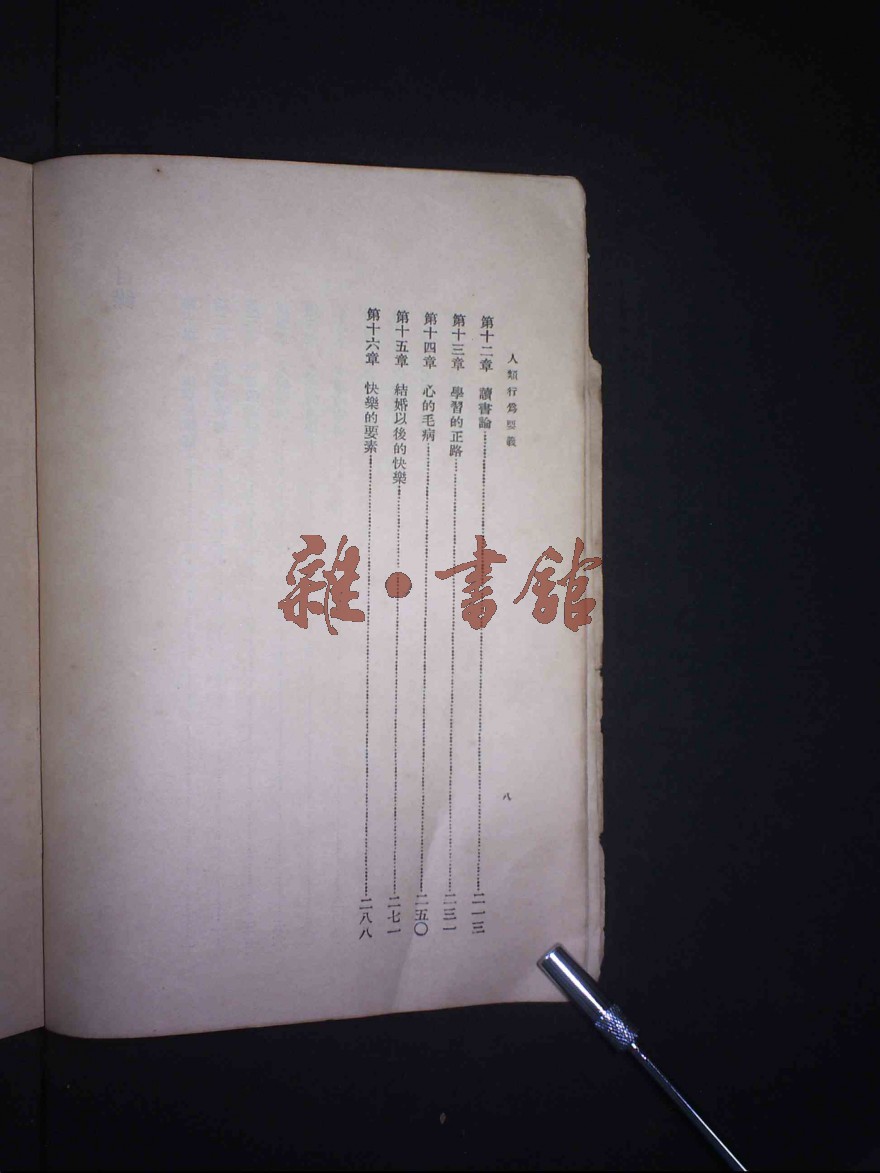 人類行爲要義
八
第十二章　讀書論⋯⋯二一三
第十三章　學習的正路⋯⋯二三一
第十四章　心的毛病⋯⋯二五〇
第十五章　結婚以後的快樂⋯⋯二七一
第十六章　快樂的要素⋯⋯二八八
雜·書館